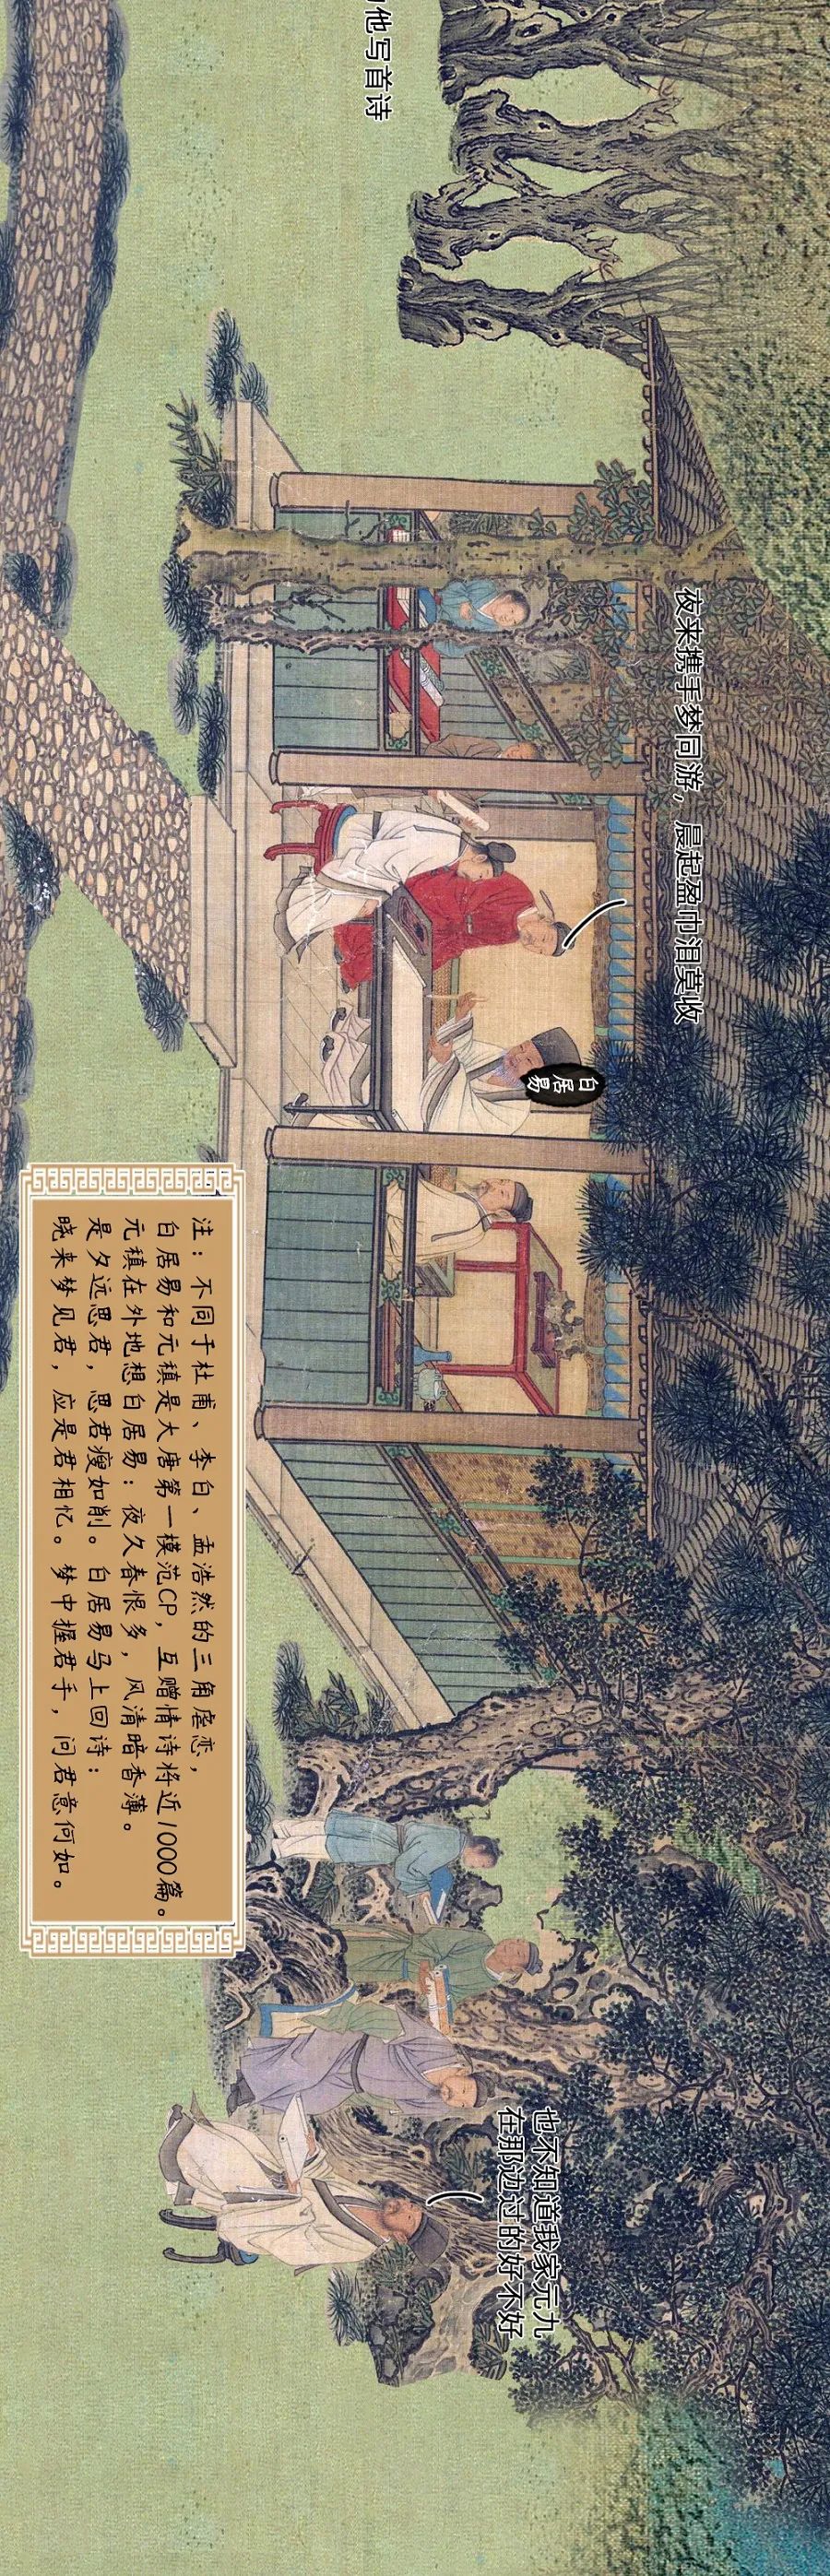 他写首诗
夜来携手梦同游，晨起盈巾泪莫收
白居易
注：不同于杜甫、李白、孟浩然的三角虐恋，
白居易和元稹是大唐第一模范CP，互赠情诗将近1000篇。
元稹在外地想白居易：夜久春恨多，风清暗香薄。
是夕远思君，思君瘦如削。白居易马上回诗：
晓来梦见君，应是君相忆。梦中握君手，问君意何如。
也不知道我家元九
在那边过的好不好